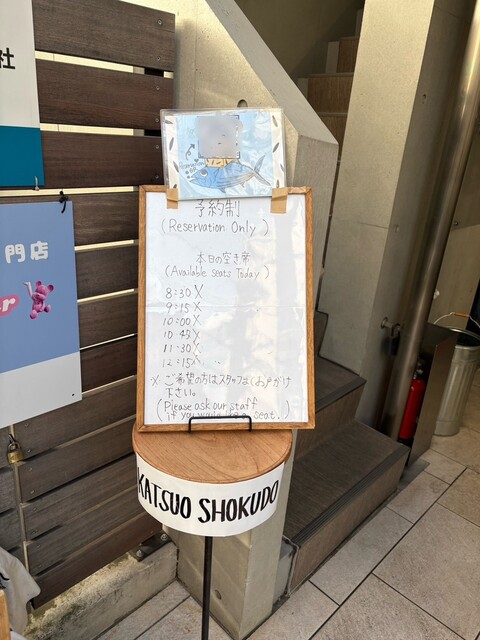 社
門店
予約制
(Reservation Only)
本日の空き席
(Available seats Today)
8:30 X
9:15 X
10:00 X
10:45 X
11:30 X
12:15 X
※ご希望の方はスタッフまでお声がけ
下さい。
(Please ask our staff
if you would like a seat.)
KATSUO SHOKUDO